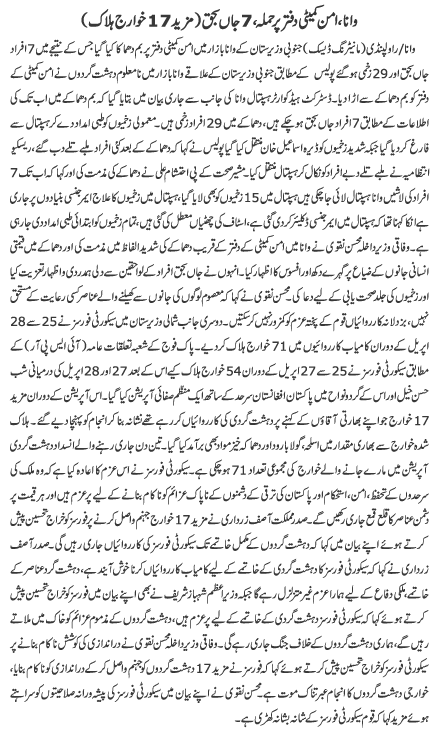 وانا، امن کمیٹی دفتر پر حملہ، 7 جاں بحق (مزید 17 خوارج ہلاک)
وانا/راولپنڈی (مانیٹرنگ ڈیسک) جنوبی وزیرستان کے وانا بازار میں امن کمیٹی دفتر پر بم دھماکا کیا گیا جس کے نتیجے میں 7 افراد
جاں بحق اور 29 زخمی ہوگئے پولیس کے مطابق جنوبی وزیرستان کے علاقے وانا بازار میں نامعلوم دہشت گردوں نے امن کمیٹی کے
دفتر کو بم دھماکے سے اڑا دیا۔ ڈسٹرکٹ ہیڈ کوارٹر ہسپتال وانا کی جانب سے جاری بیان میں بتایا گیا کہ بم دھماکے میں اب تک کی
اطلاعات کے مطابق 7 افراد جاں بحق ہو چکے ہیں، دھماکے میں 29 افراد زخمی ہیں۔ معمولی زخمیوں کو طبی امداد دے کر ہسپتال سے
فارغ کر دیا گیا جبکہ شدید زخمیوں کو ڈیرہ اسماعیل خان منتقل کیا گیا پولیس نے کہا کہ دھماکے کے بعد کئی افراد ملبے تلے دب گئے، ریسکیو
انتظامیہ نے ملبے تلے دبے افراد کو نکال کر ہسپتال منتقل کیا۔ مشیر صحت کے پی احتشام علی نے دھماکے کی مذمت کی اور کہا کہ اب تک 7
افراد کی لاشیں وانا ہسپتال لائی جا چکی ہیں ہسپتال میں 15 زخمیوں کو بھی لایا گیا، ہسپتال میں زخمیوں کا علاج ایمرجنسی بنیادوں پر جاری
ہے انکا کہنا تھا کہ ہسپتال میں ایمرجنسی ڈکلیئر کر دی گئی ہے، اسٹاف کی چھٹیاں معطل کی گئی ہیں، تمام زخمیوں کو ابتدائی طبی امداد دی جا رہی
ہے۔ وفاقی وزیر داخلہ محسن نقوی نے وانا میں امن کمیٹی کے دفتر کے قریب دھماکے کی شدید الفاظ میں مذمت کی اور دھماکے میں قیمتی
انسانی جانوں کے ضیاع پر گہرے دکھ اور افسوس کا اظہار کیا۔ انہوں نے جاں بحق افراد کے لواحقین سے دلی ہمدردی و اظہار تعزیت کیا
اور زخمیوں کی جلد صحت یابی کے لیے دعا کی۔ محسن نقوی نے کہا کہ معصوم لوگوں کی جانوں سے کھیلنے والے عناصر کسی رعایت کے مستحق
نہیں، بزدلانہ کارروائیاں قوم کے پختہ عزم کو کمزور نہیں کرسکتیں۔ دوسری جانب شمالی وزیرستان میں سیکورٹی فورسز نے 25 سے 28
اپریل کے دوران کامیاب کارروائیوں میں 71 خوارج ہلاک کر دیے۔ پاک فوج کے شعبہ تعلقات عامہ (آئی ایس پی آر) کے
مطابق سیکورٹی فورسز نے 25 سے 27 اپریل کے دوران 54 خوارج ہلاک کیے اس کے بعد 27 اور 28 اپریل کی درمیانی شب
حسن خیل اور اس کے گرد و نواح میں پاکستان افغانستان سرحد کے ساتھ ایک منظم صفائی آپریشن کیا گیا۔ اس آپریشن کے دوران مزید
17 خوارج جو اپنے بھارتی آقاؤں کے کہنے پر دہشت گردی کی کارروائیاں کر رہے تھے نشانہ بنا کر انجام کو پہنچا دیے گئے۔ ہلاک
شدہ خوارج سے بھاری مقدار میں اسلحہ، گولا بارود اور دھماکہ خیز مواد بھی برآمد کیا گیا۔ تین دن جاری رہنے والے انسداد دہشت گردی
آپریشن میں مارے جانے والے خوارج کی مجموعی تعداد 71 ہو چکی ہے۔ سیکورٹی فورسز نے اس عزم کا اعادہ کیا ہے کہ وہ ملک کی
سرحدوں کے تحفظ، امن، استحکام اور پاکستان کی ترقی کے دشمنوں کے ناپاک عزائم کو ناکام بنانے کے لیے پرعزم ہیں اور ہر قیمت پر
دشمن عناصر کا قلع قمع جاری رکھیں گے۔ صدر مملکت آصف زرداری نے مزید 17 خوارج جہنم واصل کرنے پر فورسز کو خراج تحسین پیش
کرتے ہوئے اپنے بیان میں کہا کہ دہشت گردوں کے مکمل خاتمے تک سیکورٹی فورسز کی کارروائیاں جاری رہیں گی۔ صدر آصف
زرداری نے کہا کہ سیکورٹی فورسز کی دہشت گردی کے خاتمے کے لیے کامیاب کارروائیاں کرنا خوش آئند ہے، دہشت گرد عناصر کے
خاتمے، ملکی دفاع کے لیے ہمارا عزم غیر متزلزل رہے گا جبکہ وزیر اعظم شہباز شریف نے بھی اپنے بیان میں فورسز کو خراج تحسین پیش
کرتے ہوئے کہا کہ سیکورٹی فورسز دہشت گردی کے خاتمے کے لیے پرعزم ہیں، دہشت گردوں کے مذموم عزائم کو خاک میں ملاتے
رہیں گے، ہماری دہشت گردوں کے خلاف جنگ جاری رہے گی۔ وفاقی وزیر داخلہ محسن نقوی نے دراندازی کی کوشش ناکام بنانے پر
خراج تحسین پیش کرتے ہوئے کہا کہ فورسز نے مزید 17 دہشت گردوں کو جہنم واصل کر کے دراندازی کو ناکام بنایا،
خوارجی دہشت گردوں کا انجام عبرتناک موت ہے۔ محسن نقوی نے اپنے بیان میں سیکورٹی فورسز کی پیشہ ورانہ صلاحیتوں کو سراہتے
ہوئے مزید کہا کہ قوم سیکورٹی فورسز کے شانہ بشانہ کھڑی ہے۔